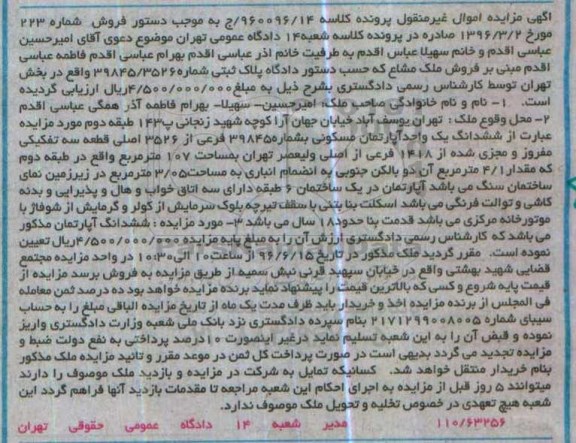 آگهی مزایده اموال غیرمنقول پرونده کلاسه ۹۶۰۰۹۶/۱۴/ج به موجب دستور فروش شماره ۲۲۳
مورخ ۱۳۹۶/۳/۲ صادره در پرونده کلاسه شعبه۱۴ دادگاه عمومی تهران موضوع دعوی آقای امیرحسین
عباسی اقدم و خانم سهیلا عباس اقدم به طرفیت خانم آذر عباسی اقدم بهرام عباسی اقدم فاطمه عباسی
اقدم مبنی بر فروش ملک مشاع که حسب دستور دادگاه پلاک ثبتی شماره۳۹۸۴۵/۳۵۲۶ واقع در بخش
تهران توسط کارشناس رسمی دادگستری بشرح ذیل به مبلغ۴/۵۰۰/۰۰۰/۰۰۰ریال ارزیابی گردیده
است. ۱- نام و نام خانوادگی صاحب ملک: امیرحسین- سهیلا- بهرام فاطمه آذر همگی عباسی اقدم
۲- محل وقوع ملک: تهران یوسف آباد خیابان جهان آرا کوچه شهید زنجانی پ۱۴۳ طبقه دوم مورد مزایده
عبارت از ششدانگ یک واحدآپارتمان مسکونی بشماره۳۹۸۴۵ فرعی از ۳۵۲۶ اصلی قطعه سه تفکیکی
مفروز و مجزی شده از ۱۴۱۸ فرعی از اصلی ولیعصر تهران بمساحت ۱۰۷ مترمربع واقع در طبقه دوم
که مقدار۴/۱ مترمربع آن دو بالکن جنوبی به انضمام انباری به مساحت۳/۰۵ مترمربع در زیرزمین نمای
ساختمان سنگ می باشد آپارتمان در یک ساختمان ۶ طبقه دارای سه اتاق خواب و هال و پذیرایی و بدنه
کاشی و توالت فرنگی می باشد اسکلت بنا بتنی با سقف تیرچه بلوک سرمایش از کولر و گرمایش از شوفاژ با
موتورخانه مرکزی می باشد قدمت بنا حدود۱۸ سال می باشد ۳- مورد مزایده : ششدانگ آپارتمان مذکور
می باشد که کارشناس رسمی دادگستری ارزش آن را به مبلغ پایه مزایده ۴/۵۰۰/۰۰۰/۰۰۰ریال تعیین
نموده است. مقرر گردید ملک مذکور در تاریخ ۹۶/۶/۱۵ از ساعت۱۰ الی۱۰:۳۰ در واحد مزایده مجتمع
قضایی شهید بهشتی واقع در خیابان سپهبد قرنی نبش سمیه از طریق مزایده به فروش برسد مزایده از
قیمت پایه شروع و کسی که بالاترین قیمت را پیشنهاد نماید برنده مزایده خواهد بود ده درصد ثمن معامله
فی المجلس از برنده مزایده اخذ و خریدار باید ظرف مدت یک ماه از تاریخ مزایده الباقی مبلغ را به حساب
سیبای شماره ۲۱۷۱۲۹۹۰۰۸۰۰۵ بنام سپرده دادگستری نزد بانک ملی شعبه وزارت دادگستری واریز
نموده و قبض آن را به این شعبه تسلیم نماید درغیر اینصورت ۱۰درصد پرداختی به نفع دولت ضبط و
مزایده تجدید می گردد بدیهی است در صورت پرداخت کل ثمن در موعد مقرر و تائید مزایده ملک مذکور
بنام خریدار منتقل خواهد شد. کسانیکه تمایل به شرکت در مزایده و بازدید ملک موصوف را دارند
میتوانند ۵ روز قبل از مزایده به اجرای احکام این شعبه مراجعه تا مقدمات بازدید آنها فراهم گردد این
شعبه هیچ تعهدی در خصوص تخلیه و تحویل ملک موصوف ندارد.
۱۱۰/۶۳۲۵۶ مدیر شعبه ۱۴ دادگاه عمومی حقوقی تهران